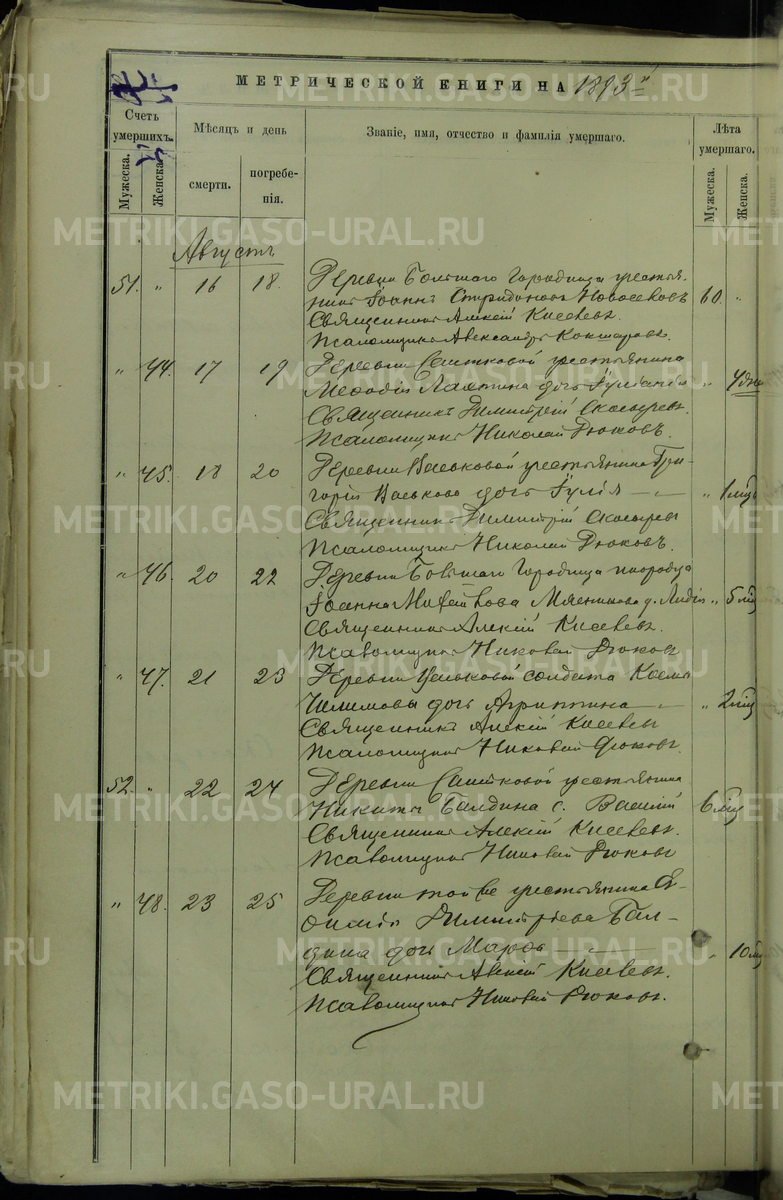 МЕТРИЧЕСКОЙ КНИГИ НА 1893 й
Счетъ умершихъ.
Мужеска.
Женска.
Мѣсяцъ и день
смерти.
погребенія.
Званіе, имя, отчество и фамилія умершаго.
Лѣта умершаго.
Мужеска.
Женска.
Августъ
51. " 16 18 Деревни Большаго Городища крестья-
нинъ Іоаннъ Спиридоновъ Новоселовъ 60 "
Священникъ Алексій Киселевъ.
Псаломщикъ Александръ Кокшаровъ.
" 44. 17 19 Деревни крестьянина
Меѳодія дочь "
Священникъ Димитрій
Псаломщикъ Николай Дюковъ.
" 45. 18 20 Деревни Васьковой крестьянина Гри-
горія Васькова дочь Іулія " 1 мѣс
Священникъ Димитрій
Псаломщикъ Николай Дюковъ.
" 46. 20 22 Деревни Большаго Городища инородца
Іоанна Мясникова д. Лидія " 5 мѣс
Священникъ Алексій Киселевъ.
Псаломщикъ Николай Дюковъ
" 47. 21 23 Деревни солдата Космы
дочь Агриппина " 2 мѣс
Священникъ Алексій Киселевъ
Псаломщикъ Николай Дюковъ.
52. " 22 24 Деревни крестьянина
Никиты Балдина с. Василій 6 мѣс
Священникъ Алексій Киселевъ.
Псаломщикъ Николай Дюковъ
" 48. 23 25 Деревни той же крестьянина
Димитріева Бал-
дина дочь Марѳа " 10 мѣс
Священникъ Алексій Киселевъ.
Псаломщикъ Николай Дюковъ.
METRIKI.GASO-URAL.RU